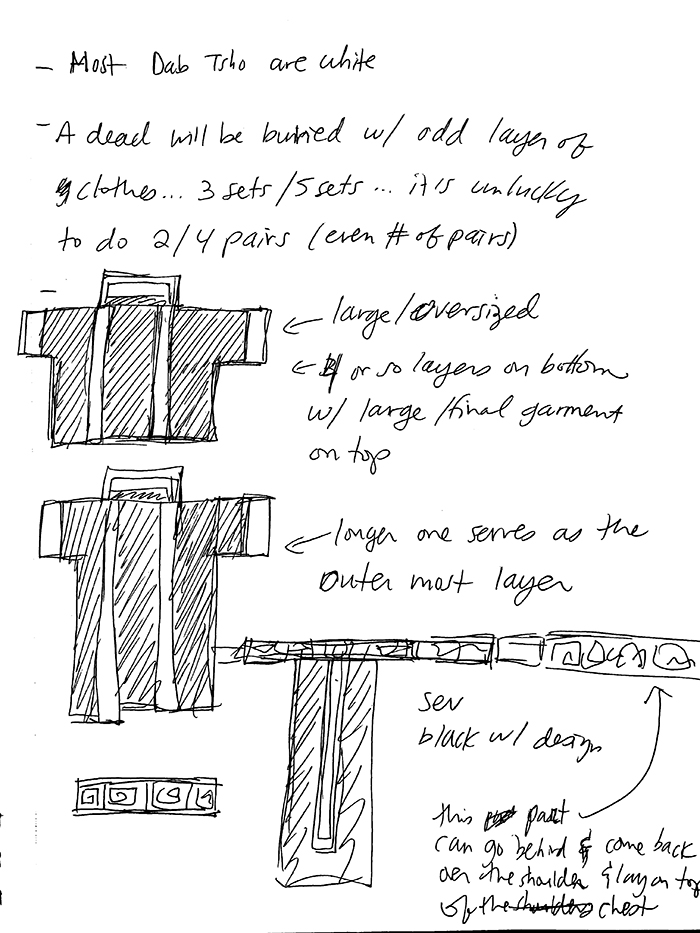 - Most Dab Tsho are white
- A dead will be buried w/ odd layer of
clothes... 3 sets/5 sets... it is unlucky
to do 2/4 pairs (even # of pairs)
-
large/oversized
or so layers on bottom
w/ large/final garment
on top
longer one serves as the
outer most layer
sev
black w/ design
this part
can go behind & come back
over the shoulder & lay on top
of the chest